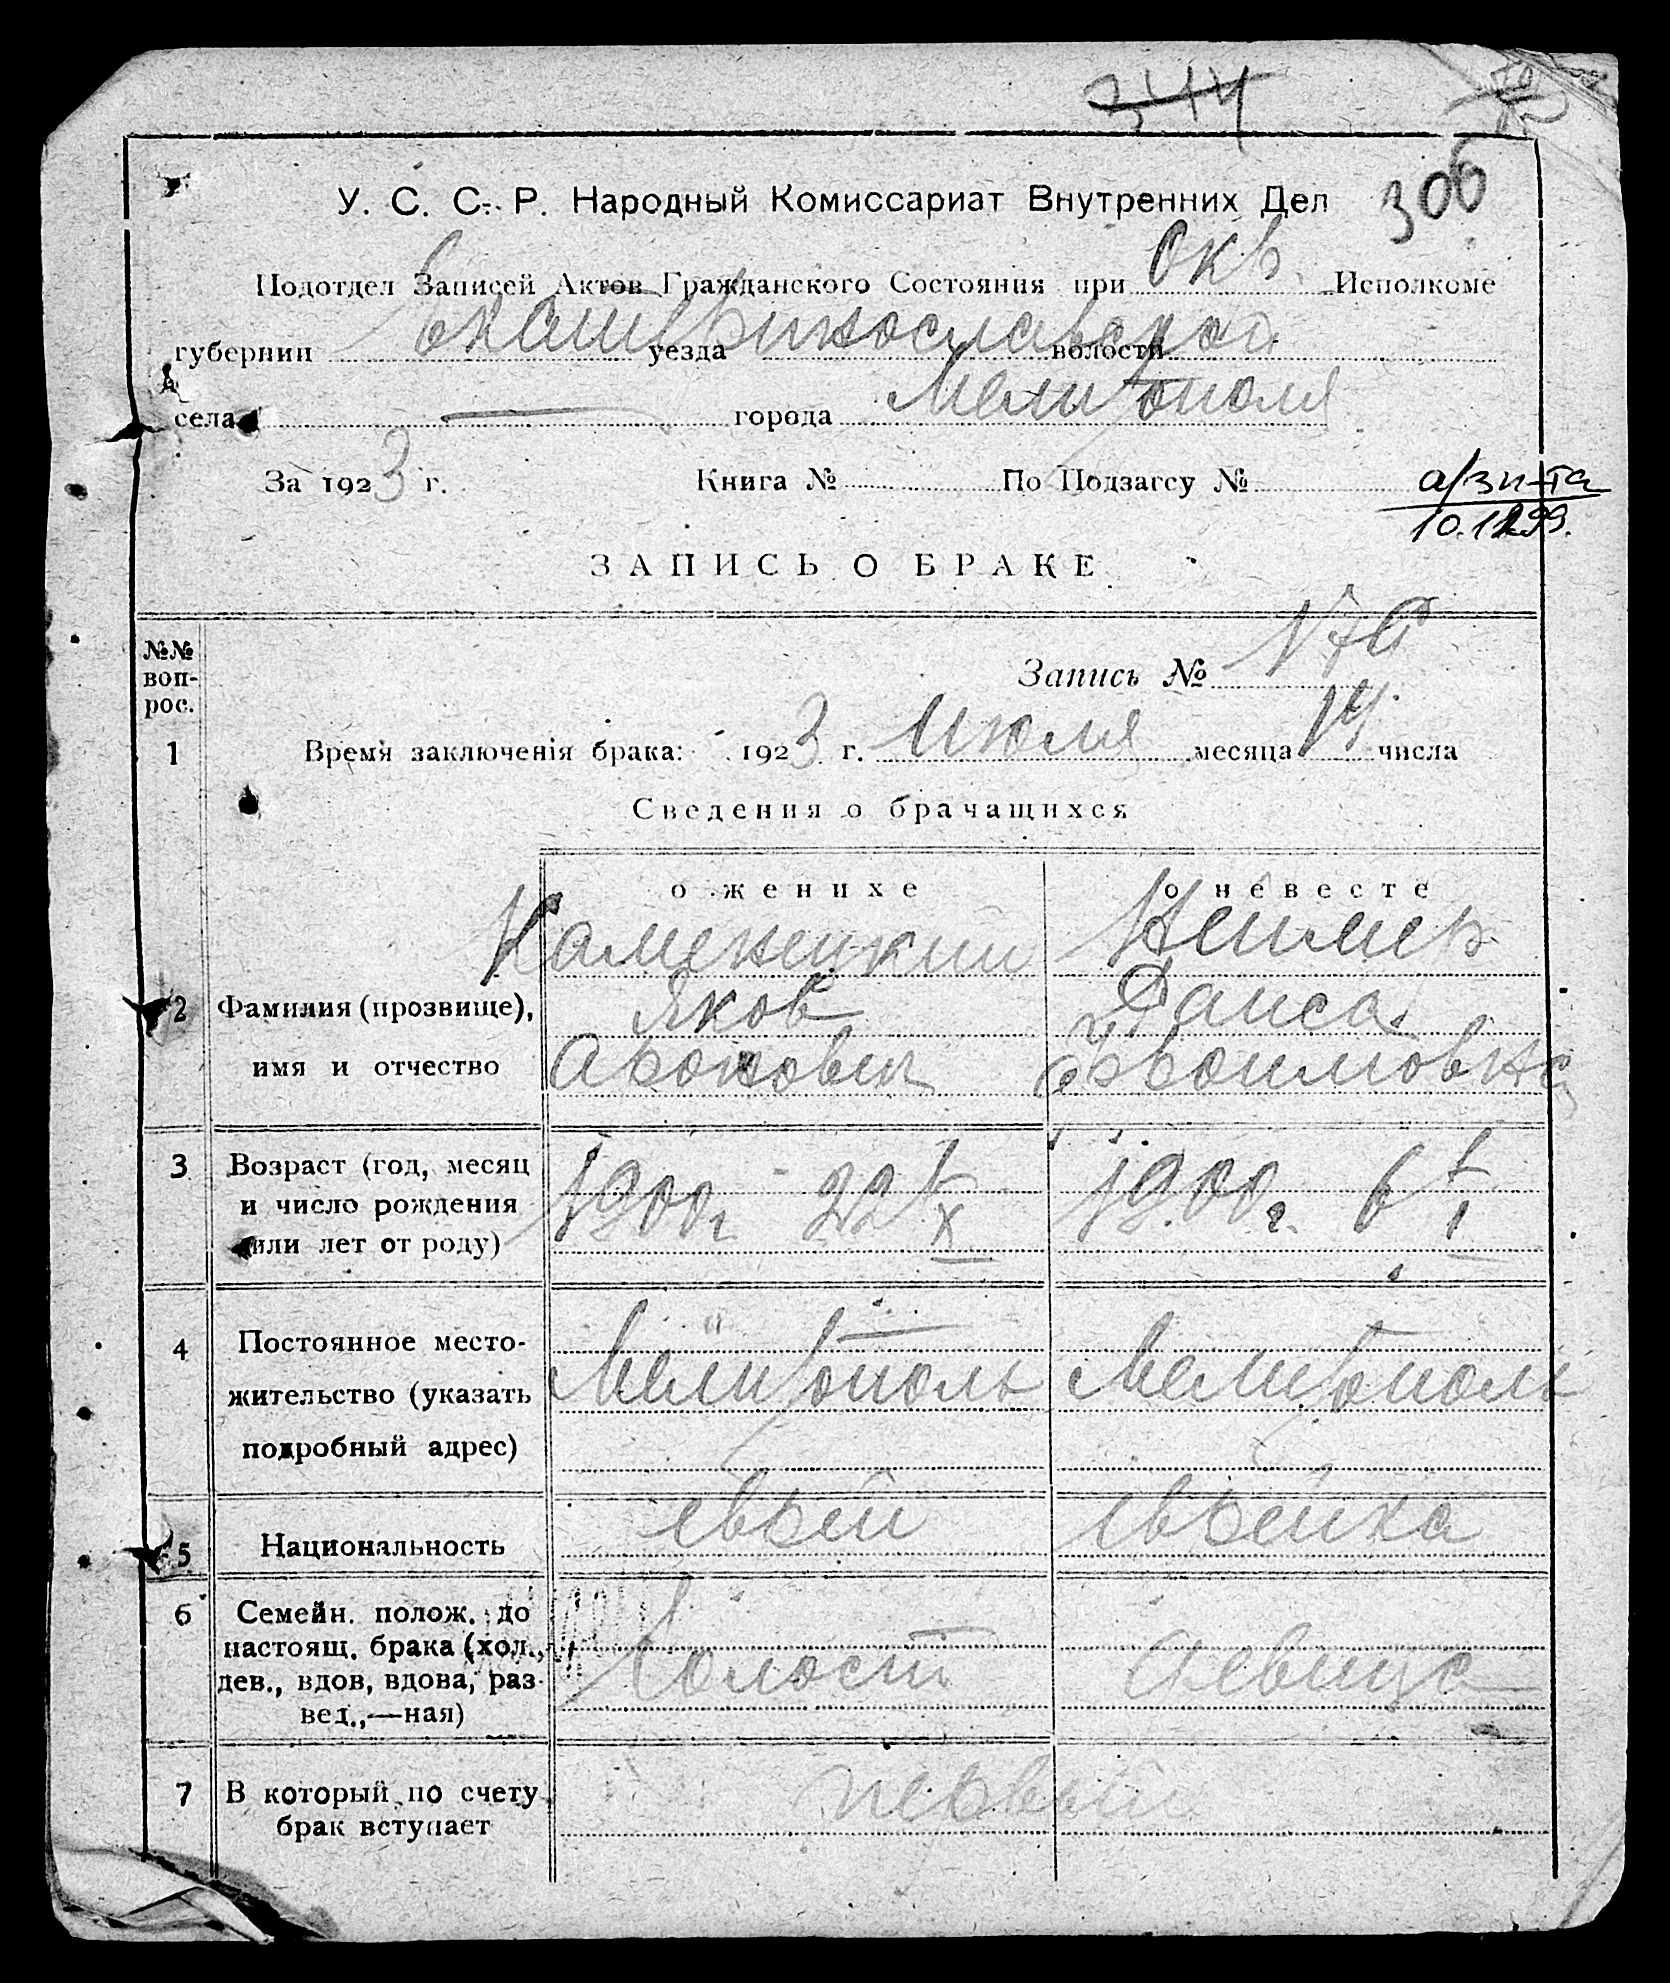 344
306
У. С. С. Р. Народный Комиссариат Внутренних Дел
Подотдел Записей Актов Гражданского Состояния при Окр. Исполкоме
губернии Екатеринославской уезда волости
села — города Мелитополя
За 1923 г. Книга № По Подзагсу №
а/зп-та
10.11.99.
ЗАПИСЬ О БРАКЕ
№№ воп-рос.
Запись №
1 Время заключенія брака: 1923 г. Июля месяца 14 числа
Сведения о брачащихся
о женихе о невесте
Каменецкий Неймер
2 Фамилия (прозвище), Яков Раиса
имя и отчество Аронович Ефроимовна
3 Возраст (год, месяц
и число рождения 1900г 22/X 1900г. 6/I
или лет от роду)
4 Постоянное место-
жительство (указать Мелитополь Мелитополь
подробный адрес)
5 Национальность еврей еврейка
6 Семейн. полож. до
настоящ. брака (хол.,
дев., вдов, вдова, раз- Холост девица
вед.,—ная)
7 В который по счету первый
брак вступает